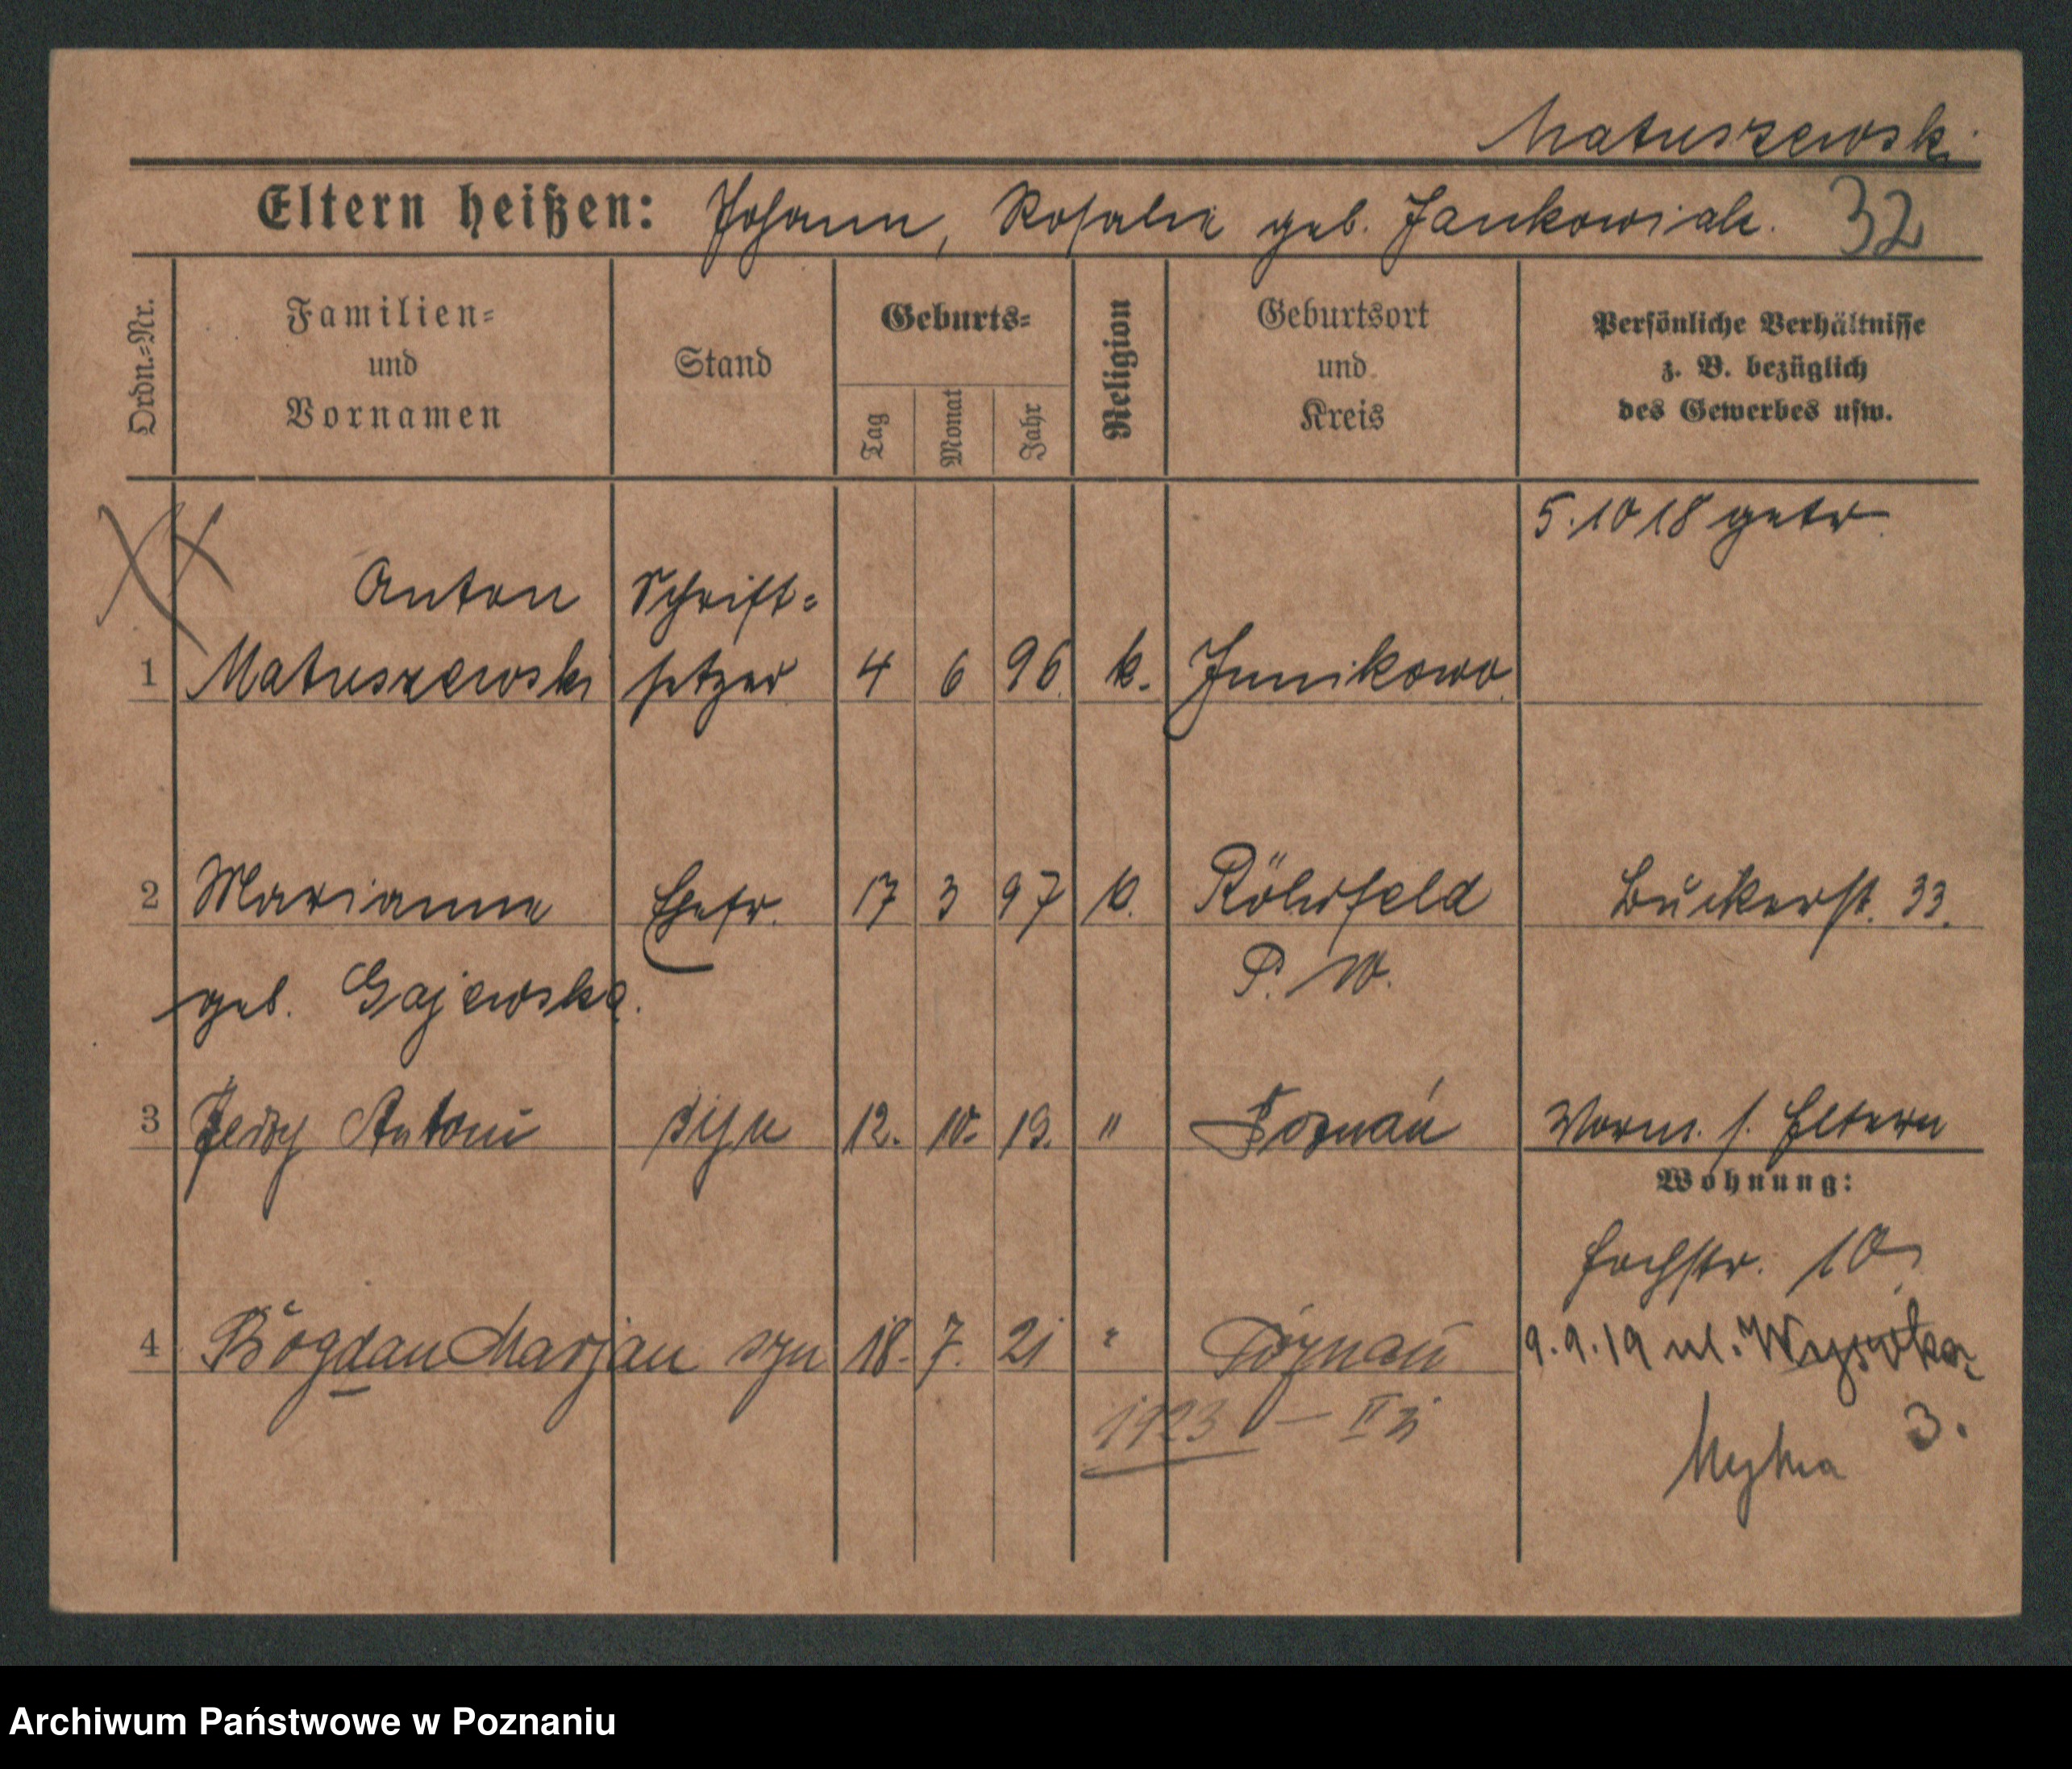 Matuszewski
Eltern heißen: Johann, Rosalie geb. Jankowiak. 32
Ordn.=Nr.
Familien=
und
Vornamen
Stand
Geburts=
Tag
Monat
Jahr
Religion
Geburtsort
und
Kreis
Persönliche Verhältnisse
z. B. bezüglich
des Gewerbes usw.
5.10 18 getr.
Anton Schrift=
1 Matuszewski setzer 4 6 96. k. Junikowo.
2 Marianne Ehefr. 17 3 97 k. Röhrfeld Bukerst. 33.
geb. Gajewska. P. W.
3 Jerzy Antoni syn 12. 10. 19. " Poznań Worm. s. Eltern
Wohnung:
10
4 Bogdan Marjan syn 18. 7. 21 " Poznań 9.9.19 ul. Wysoka
1923 3.
Archiwum Państwowe w Poznaniu